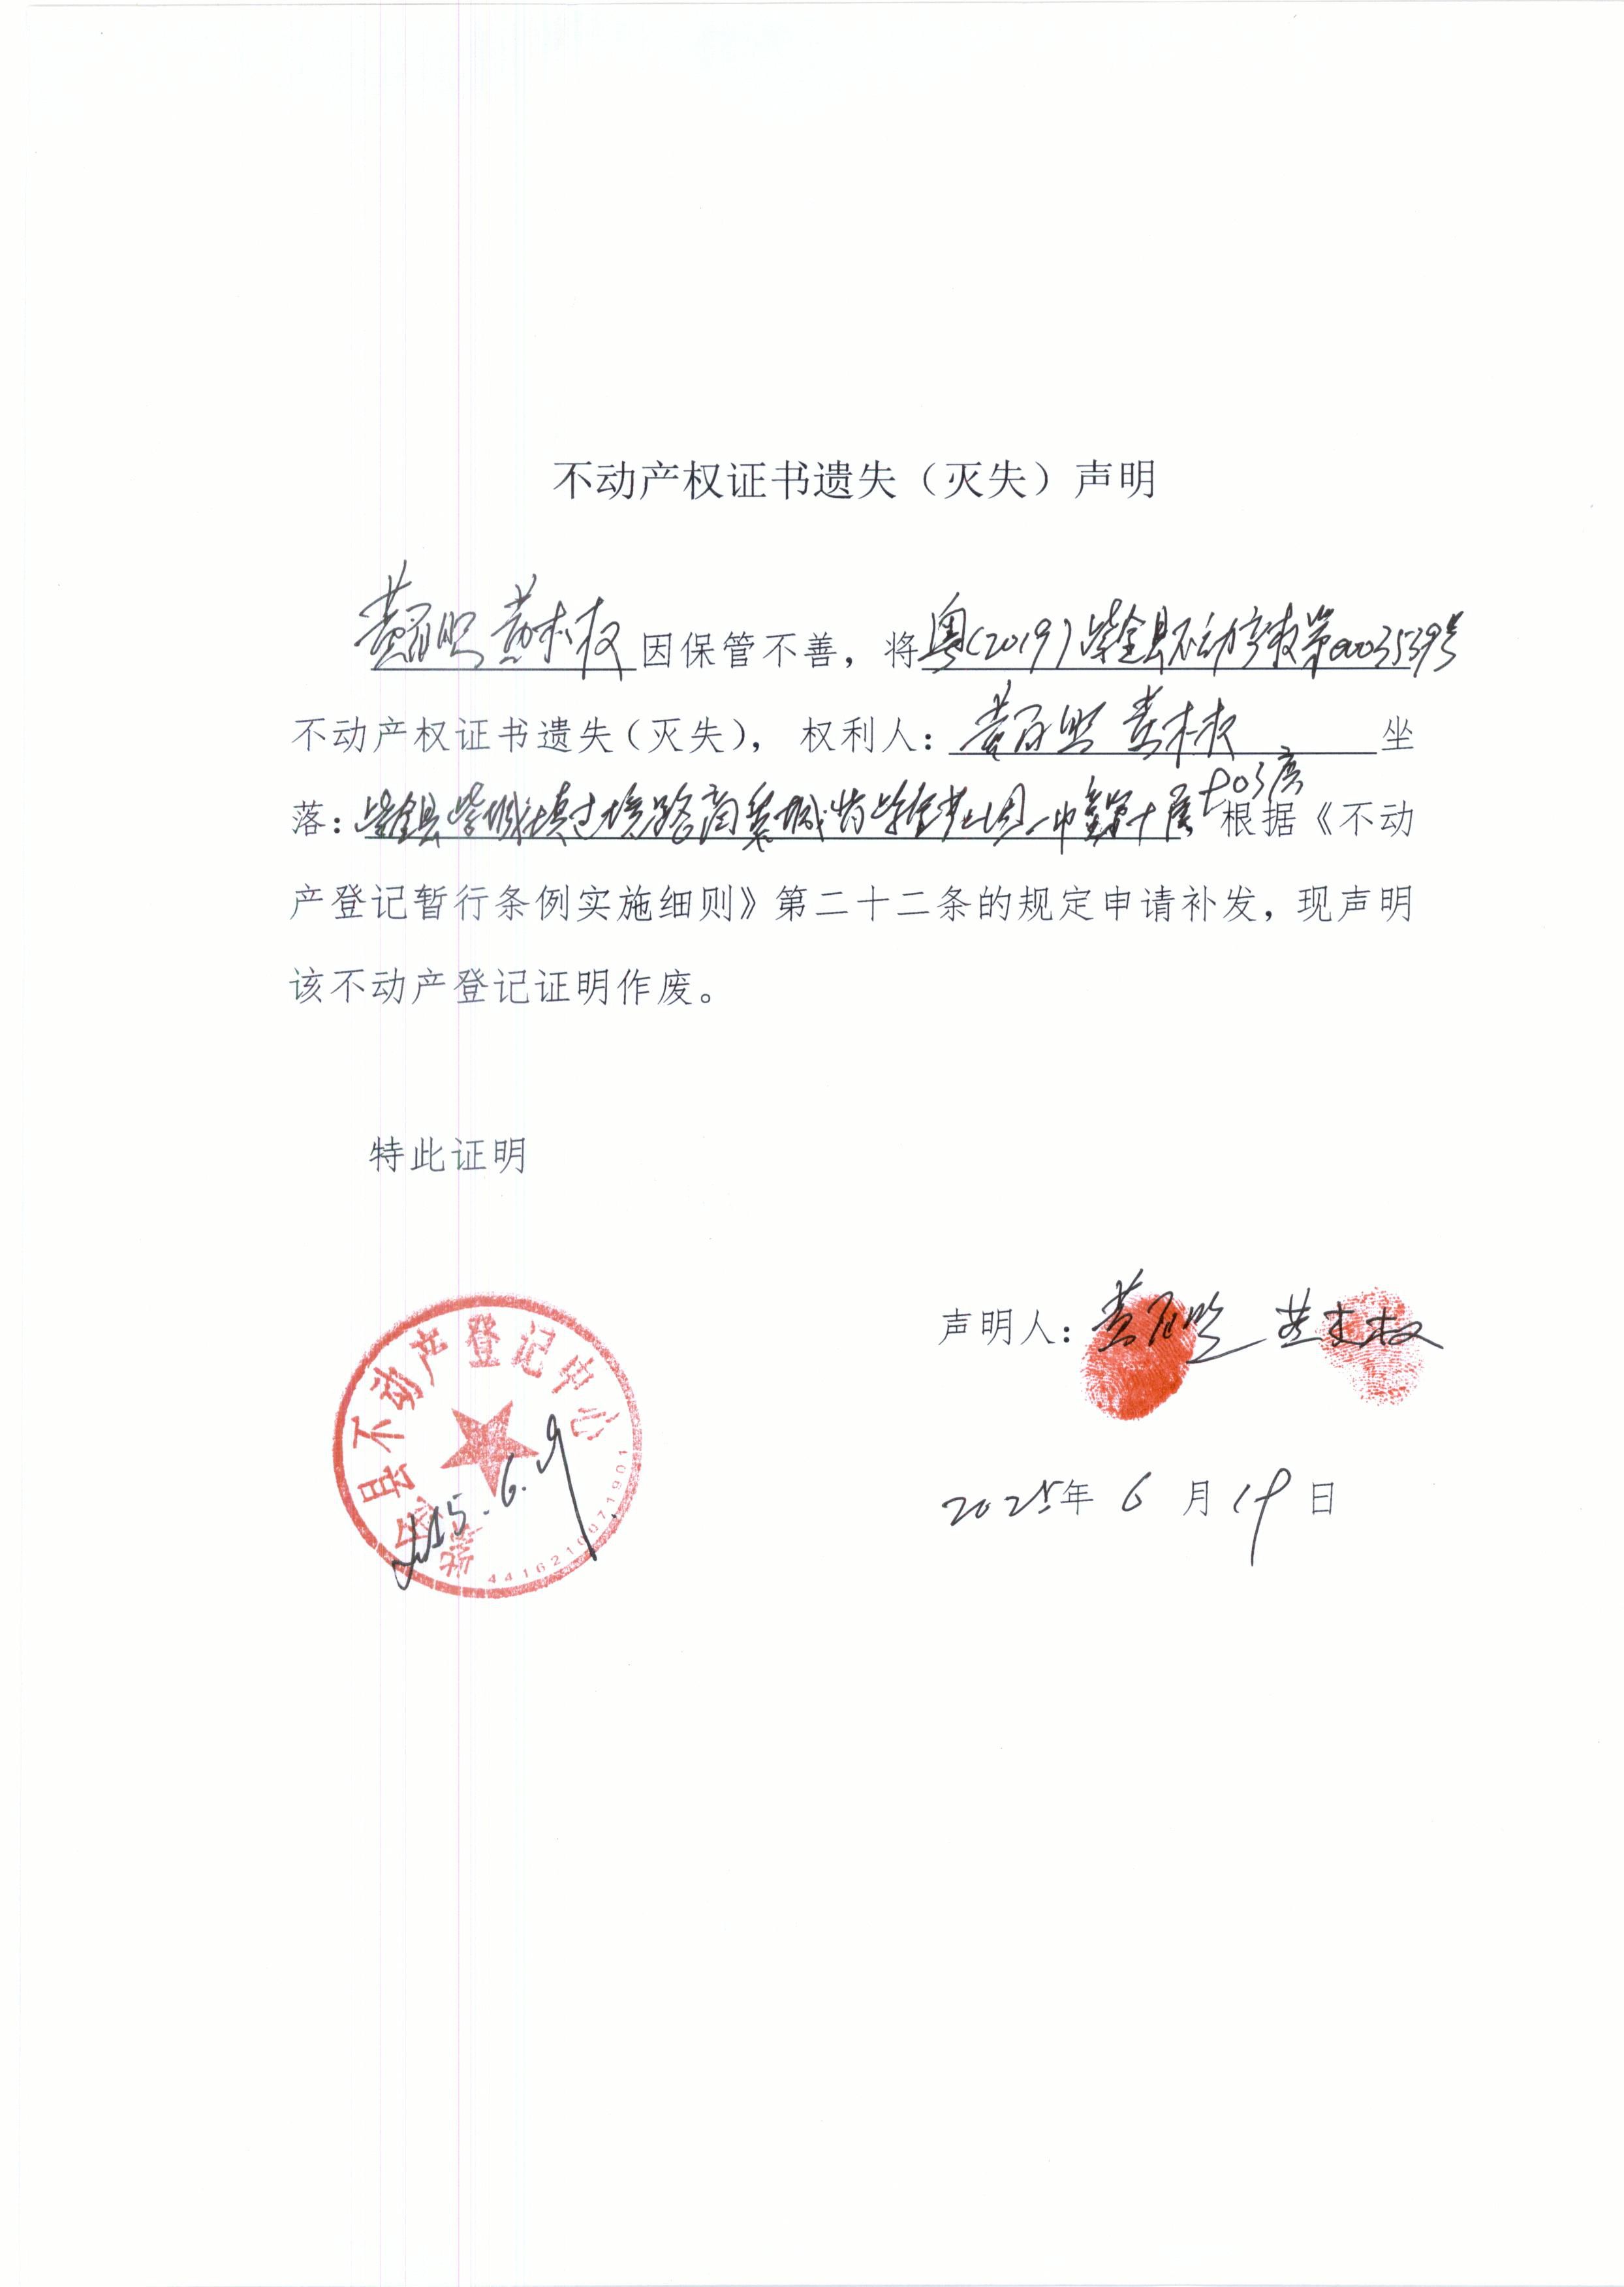 不动产权证书遗失（灭失）声明
黄 黄 权因保管不善，将粤(2019)紫金县不动产权第0003539号
不动产权证书遗失（灭失），权利人：黄 黄 权 坐
落：紫金县紫城镇过境路商业城 一巾 第十层 903房 根据《不动
产登记暂行条例实施细则》第二十二条的规定申请补发，现声明
该不动产登记证明作废。
特此证明
声明人：黄 黄 权
紫金县不动产登记中心
2025年6月19日
4416210071901